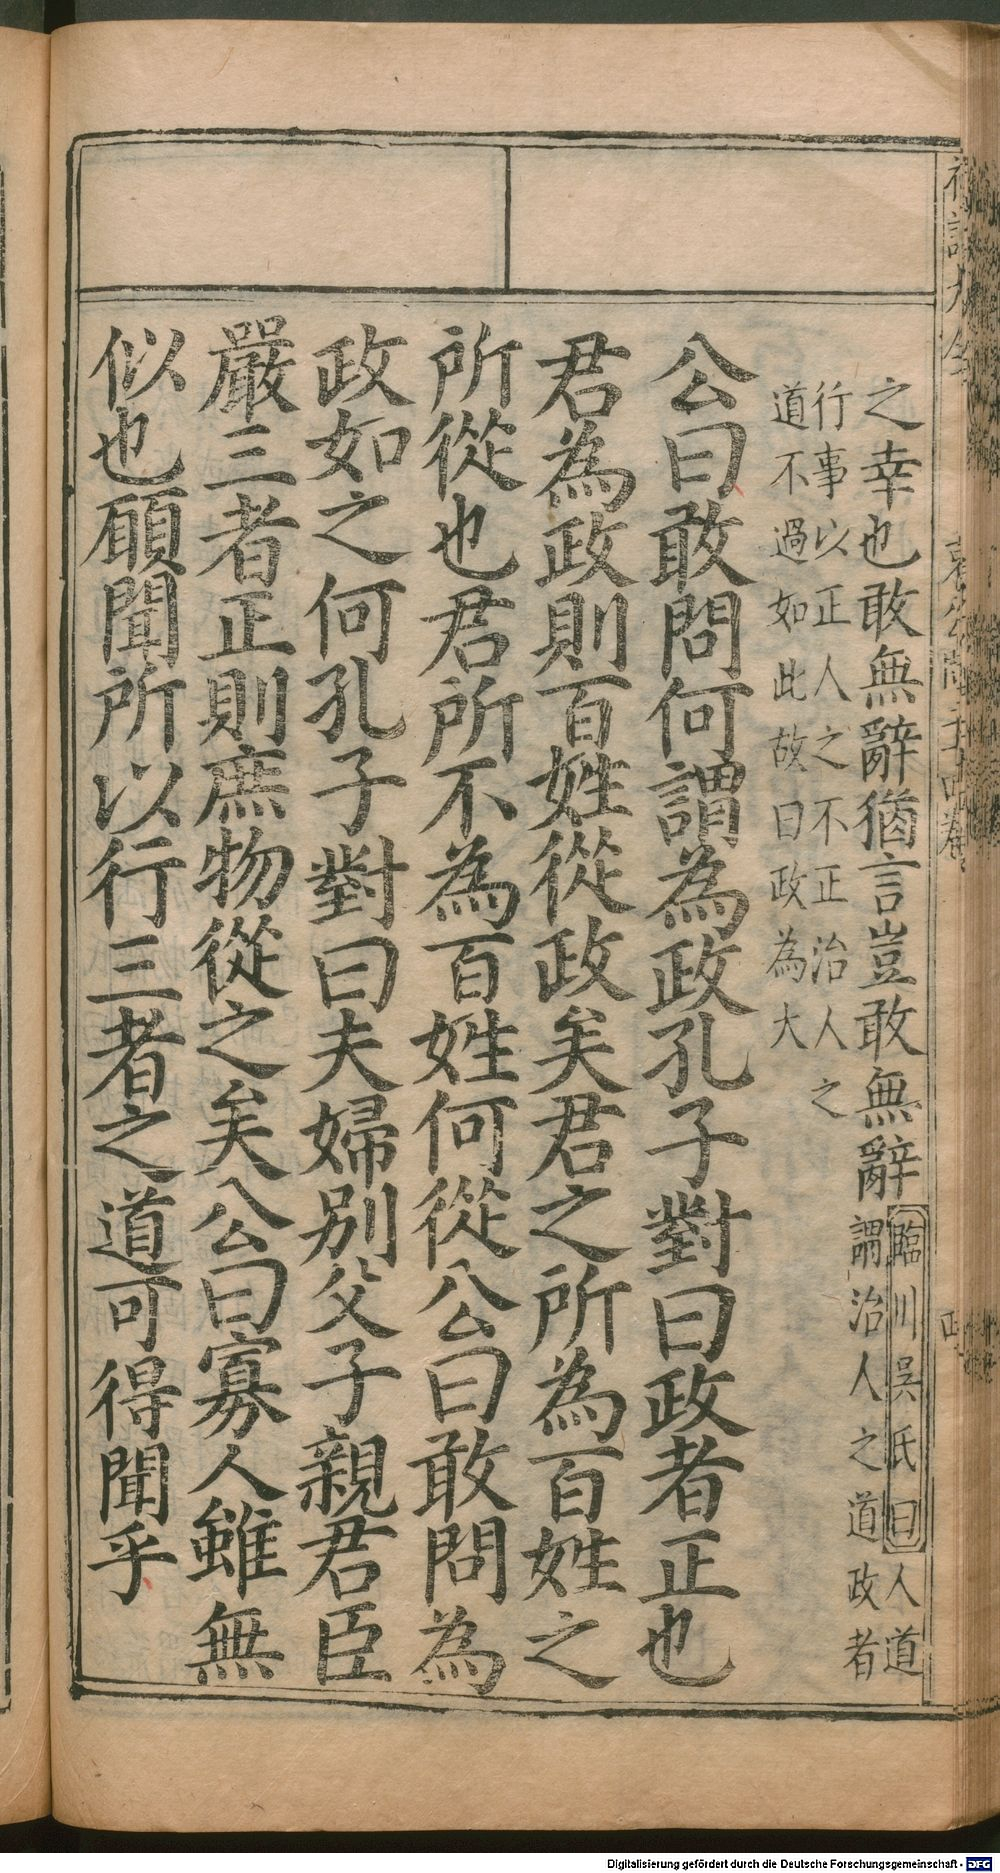 之幸也敢無辭猶言豈敢無辭臨川吳氏曰人道
謂治人之道政者
行事以正人之不正治人之
道不過如此故曰政為大
公曰敢問何謂為政孔子對曰政者正也
君為政則百姓從政矣君之所為百姓之
所從也君所不為百姓何從公曰敢問為
政如之何孔子對曰夫婦別父子親君臣
嚴三者正則庶物從之矣公曰寡人雖無
似也願聞所以行三者之道可得聞乎
Digitalisierung gefördert durch die Deutsche Forschungsgemeinschaft - DFG